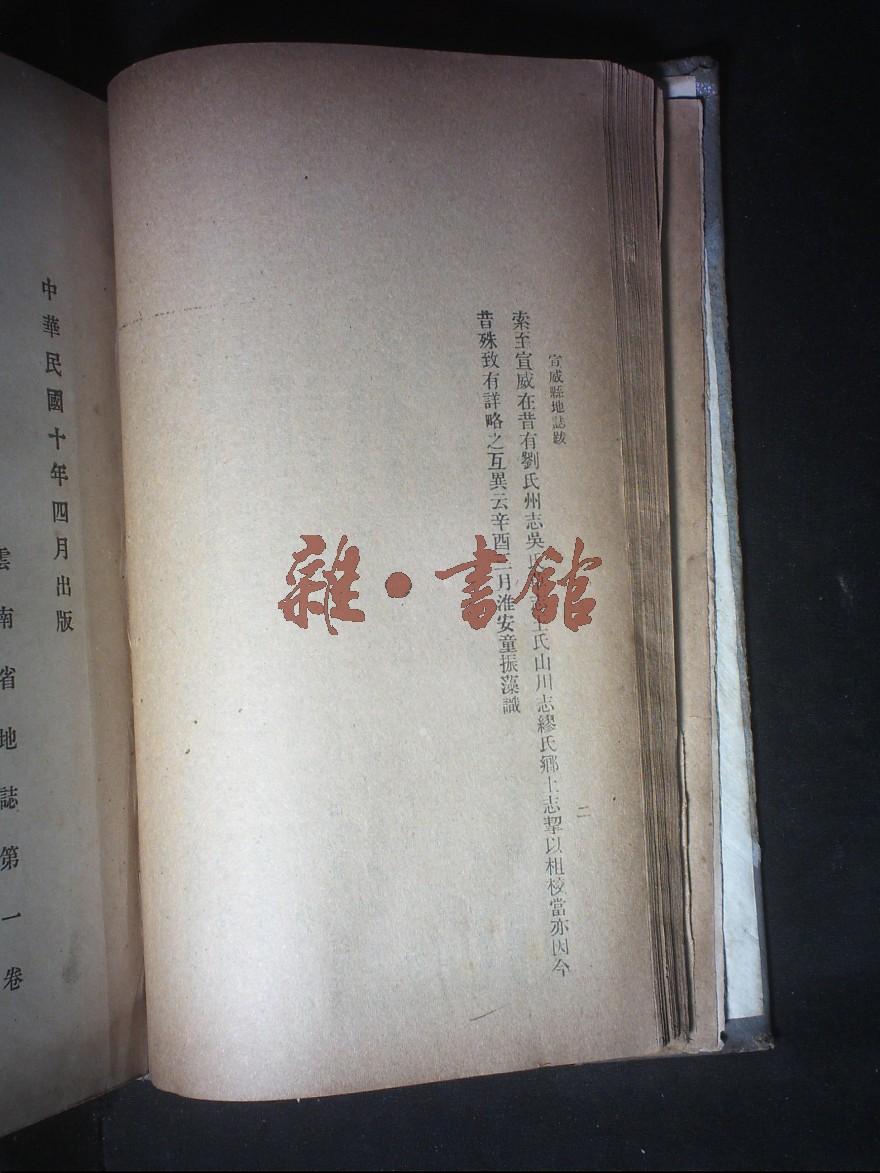 宣威縣地誌跋
二
索至宣威在昔有劉氏州志吳氏王氏山川志繆氏鄉土志挈以相校當亦因今
昔殊致有詳略之互異云辛酉二月淮安童振藻識
中華民國十年四月出版
雲南省地誌第一卷
雜·書館